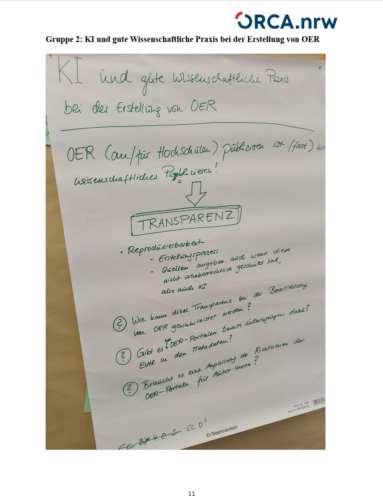 ORCA.nrw
Gruppe 2: KI und gute Wissenschaftliche Praxis bei der Erstellung von OER
KI und gute Wissenschaftliche Praxis
bei der Erstellung von OER
OER (an/für Hochschulen) publizieren ist (fast) wie
wissenschaftliches Publizieren!
TRANSPARENZ
• Reproduzierbarkeit
- Erstellungsprozess
- Quellen angeben, auch wenn diese
nicht urheberrechtlich geschützt sind,
also auch KI
? Wie kann diese Transparenz bei der Bereitstellung
von OER gewährleistet werden?
? Gibt es OER-Portalen bereits dazu?
in den Metadaten?
? Braucht es eine Anpassung der Richtlinien der
OER-Portale für Autor:innen?
CC0!
11